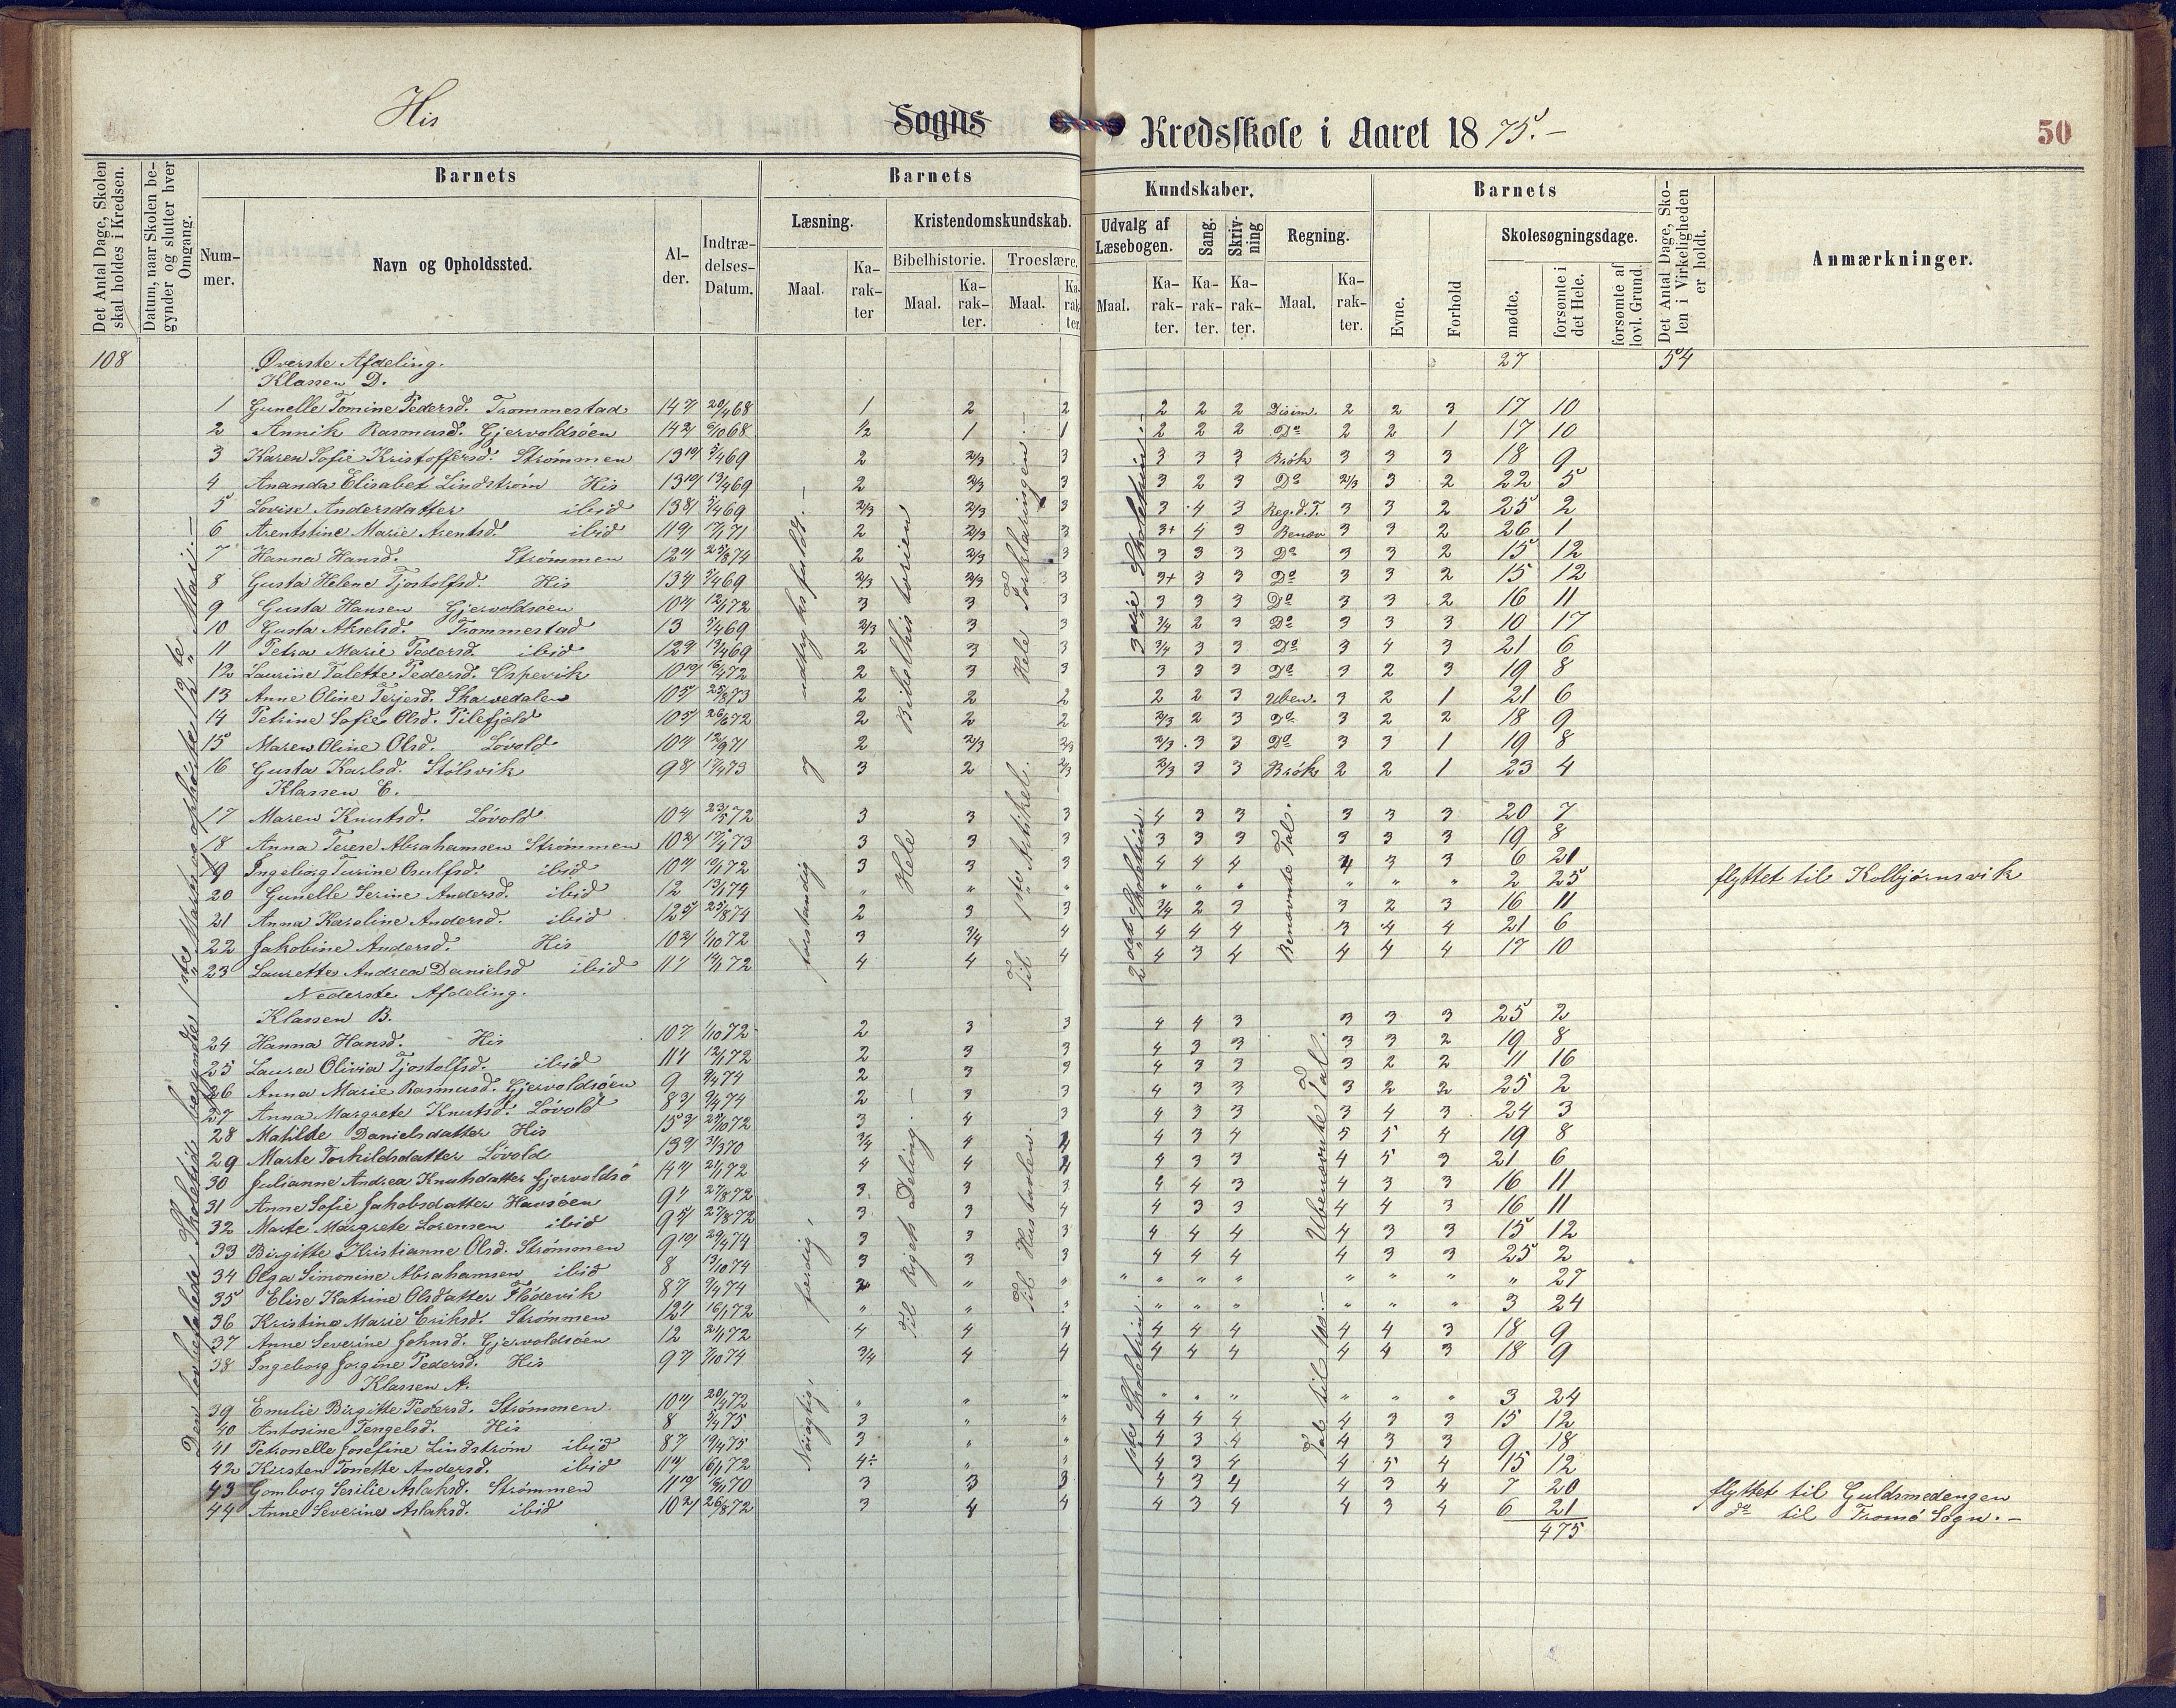 His Sogns Kredsskole i Aaret 1875.–
50
Det Antal Dage, Skolen skal holdes i Kredsen.
Datum, naar Skolen begynder og slutter hver Omgang.
Barnets
Nummer.
Navn og Opholdssted.
Alder.
Indtrædelses-Datum.
Barnets
Læsning.
Maal.
Karakter
Kristendomskundskab.
Bibelhistorie.
Maal.
Karakter.
Troeslære.
Maal.
Karakter.
Kundskaber.
Udvalg af Læsebogen.
Maal.
Karakter.
Sang.
Karakter.
Skrivning
Karakter.
Regning.
Maal.
Karakter.
Barnets
Evne.
Forhold
Skolesøgningsdage.
mødte.
forsømte i det Hele.
forsømte af lovl. Grund.
Det Antal Dage, Skolen i Virkeligheden er holdt.
Anmærkninger.
108 Øverste Afdeling. 27 54
Klassen D.
1 Gunelle Tomine Pedersd. Trommestad 20/4 68 1 2 2 2 2 2 2 2 3 17 10
2 Annik Rasmusd. Gjervoldsøen 6/10 68 1/2 1 1 2 2 2 Do 2 2 1 17 10
3 Karen Sofie Kristoffersd. Strømmen 5/4 69 2 2/3 3 3 3 3 Brøk 3 3 3 18 9
4 Ananda Elisabet Lindstrøm His 13/4 69 2 2/3 3 3 2 3 Do 2/3 3 2 22 5
5 Lovise Andersdatter ibid 5/4 69 2/3 2/3 3 3 4 3 Reg.d.T. 3 3 2 25 2
6 Arentstine Marie Arentsd. ibid 2 2/3 3 3+ 4 3 Benævn 3 3 2 26 1
7 Hanna Hansd. Strømmen 25/8 74 2 2/3 3 3 3 3 Do 3 3 2 15 12
8 Gusta Helene Tjostolfsd. His 5/4 69 2/3 2/3 3 3+ 3 3 Do 3 3 2 15 12
9 Gusta Hansen Gjervoldsøen 12/1 72 3 3 3 3 3 3 Do 3 3 2 16 11
10 Gusta Akselsd. Trommestad 13 5/4 69 2/3 3 3 3/4 2 3 Do 3 3 3 10 17
11 Petra Marie Pedersd. ibid 13/4 69 2 3 3 3/4 3 3 Do 3 4 3 21 6
12 Laurine Talette Pedersd. Ospevik 16/4 72 2 3 3 3 3 3 Do 3 2 3 19 8
13 Anne Oline Terjesd. Skarvedalen 25/8 73 2 2 2 2 2 3 Uben. 3 2 1 21 6
14 Petrine Sofie Olsd. Pilefjeld 26/6 72 2 2 2 2/3 2 3 Do 3 2 2 18 9
15 Maren Oline Olsd. Løvold 12/9 71 2 2/3 2/3 2/3 3 3 Do 3 3 1 19 8
16 Gusta Karlsd. Stølsvik 17/4 73 3 2 2/3 2/3 3 3 Brøk 2 2 1 23 4
Klassen E.
17 Maren Knutsd. Løvold 23/5 72 3 3 3 4 3 3 3 3 3 20 7
18 Anna Terese Abrahamsen Strømmen 17/4 73 3 3 3 3 3 3 3 3 3 19 8
19 Ingeborg Turine Osulfsd. ibid 3 3 3 4 4 4 4 3 3 6 21
20 Gunelle Serine Andersd. ibid 12 13/1 74 " " " " " " " " " 2 25 flyttet til Kolbjørnsvik
21 Anna Karoline Andersd. ibid 25/8 74 2 3 3 3/4 2 3 3 2 3 16 11
22 Jakobine Andersd. His 1/10 72 3 3/4 4 4 4 4 3 4 4 21 6
23 Laurette Andrea Danielsd ibid 4 4 4 4 3 4 4 4 4 17 10
Nederste Afdeling.
Klassen B.
24 Hanna Hansd. His 1/10 72 2 3 3 4 4 3 3 3 3 25 2
25 Laura Olivia Tjostolfsd. ibid 12/1 72 2 3 3 4 3 3 3 3 2 19 8
26 Anna Marie Rasmusd. Gjervoldsøen 9 9/4 74 2 3 3 4 3 3 3 2 2 11 16
27 Anna Margrete Knutsd. Løvold 9/4 74 2 3 3 4 3 3 3 2 2 25 2
28 Matilde Danielsdatter His 3 4 3 4 3 3 3 4 3 24 3
29 Marte Torkildsdatter Løvold 31/3 70 3/4 4 4 4 3 4 5 5 4 19 8
30 Julianne Andrea Knutsdatter Gjervoldsø 4 4 4 4 3 3 4 5 3 21 6
31 Anne Sofie Jakobsdatter Havsøen 27/8 72 3 3 3 4 4 3 4 3 3 16 11
32 Marte Margrete Lorensen ibid 27/8 72 3 3 4 4 3 3 4 4 3 16 11
33 Birgitte Kristianne Olsd. Strømmen 29/4 74 3 3 3 4 4 4 4 3 3 15 12
34 Olga Simonine Abrahamsen ibid 8 13/10 74 3 3 3 4 4 4 4 3 3 25 2
35 Elise Katrine Olsdatter Flødevik 9/4 74 " " " " " " " " " 27
36 Kristine Marie Eriksd. Strømmen 16/1 72 " " " " " " " " " 3 24
37 Anne Severine Johnsd. Gjervoldsøen 12 2/1 72 4 4 4 4 4 4 4 4 3 18 9
38 Ingeborg Jorgine Pedersd. His 7/10 74 3/4 4 4 4 4 4 4 4 3 18 9
Klassen A.
39 Emilie Birgitte Pedersd. Strømmen 20/4 72 " " " " " " " " " 3 24
40 Antosine Tengelsd. His 8 5/4 75 3 " " 4 4 4 4 3 3 15 12
41 Petronelle Josefine Lindstrøm ibid 19/4 75 3 " " 4 3 4 4 3 3 9 18
42 Kirsten Tonette Andersd. ibid 4÷ " " 4 3 4 4 5 4 15 12
43 Gomborg Serilie Aslaksd. Strømmen 3 3 3 4 3 4 4 3 4 7 20 flyttet til Guldsmedengen
44 Anne Severine Aslaksd. ibid 26/8 72 3 4 4 4 3 4 4 3 4 6 21 do til Tromø Sogn.–
475
Den lovbefalede Skoletid begyndte 1ste Marts og ophørte 12te Mai.–
Nøiagtig, færdig, forstandig og udtryksfuldt.–
Til Rigets Deling.–
Hele Bibelhistorien
Til Hustavlen.
Til 1ste Artikel.
Hele Forklaringen.–
1ste Skoletrin.
2det Skoletrin.
3die Skoletrin.–
Tal til 100.–
Ubenævnte Tal.
Benævnte Tal.